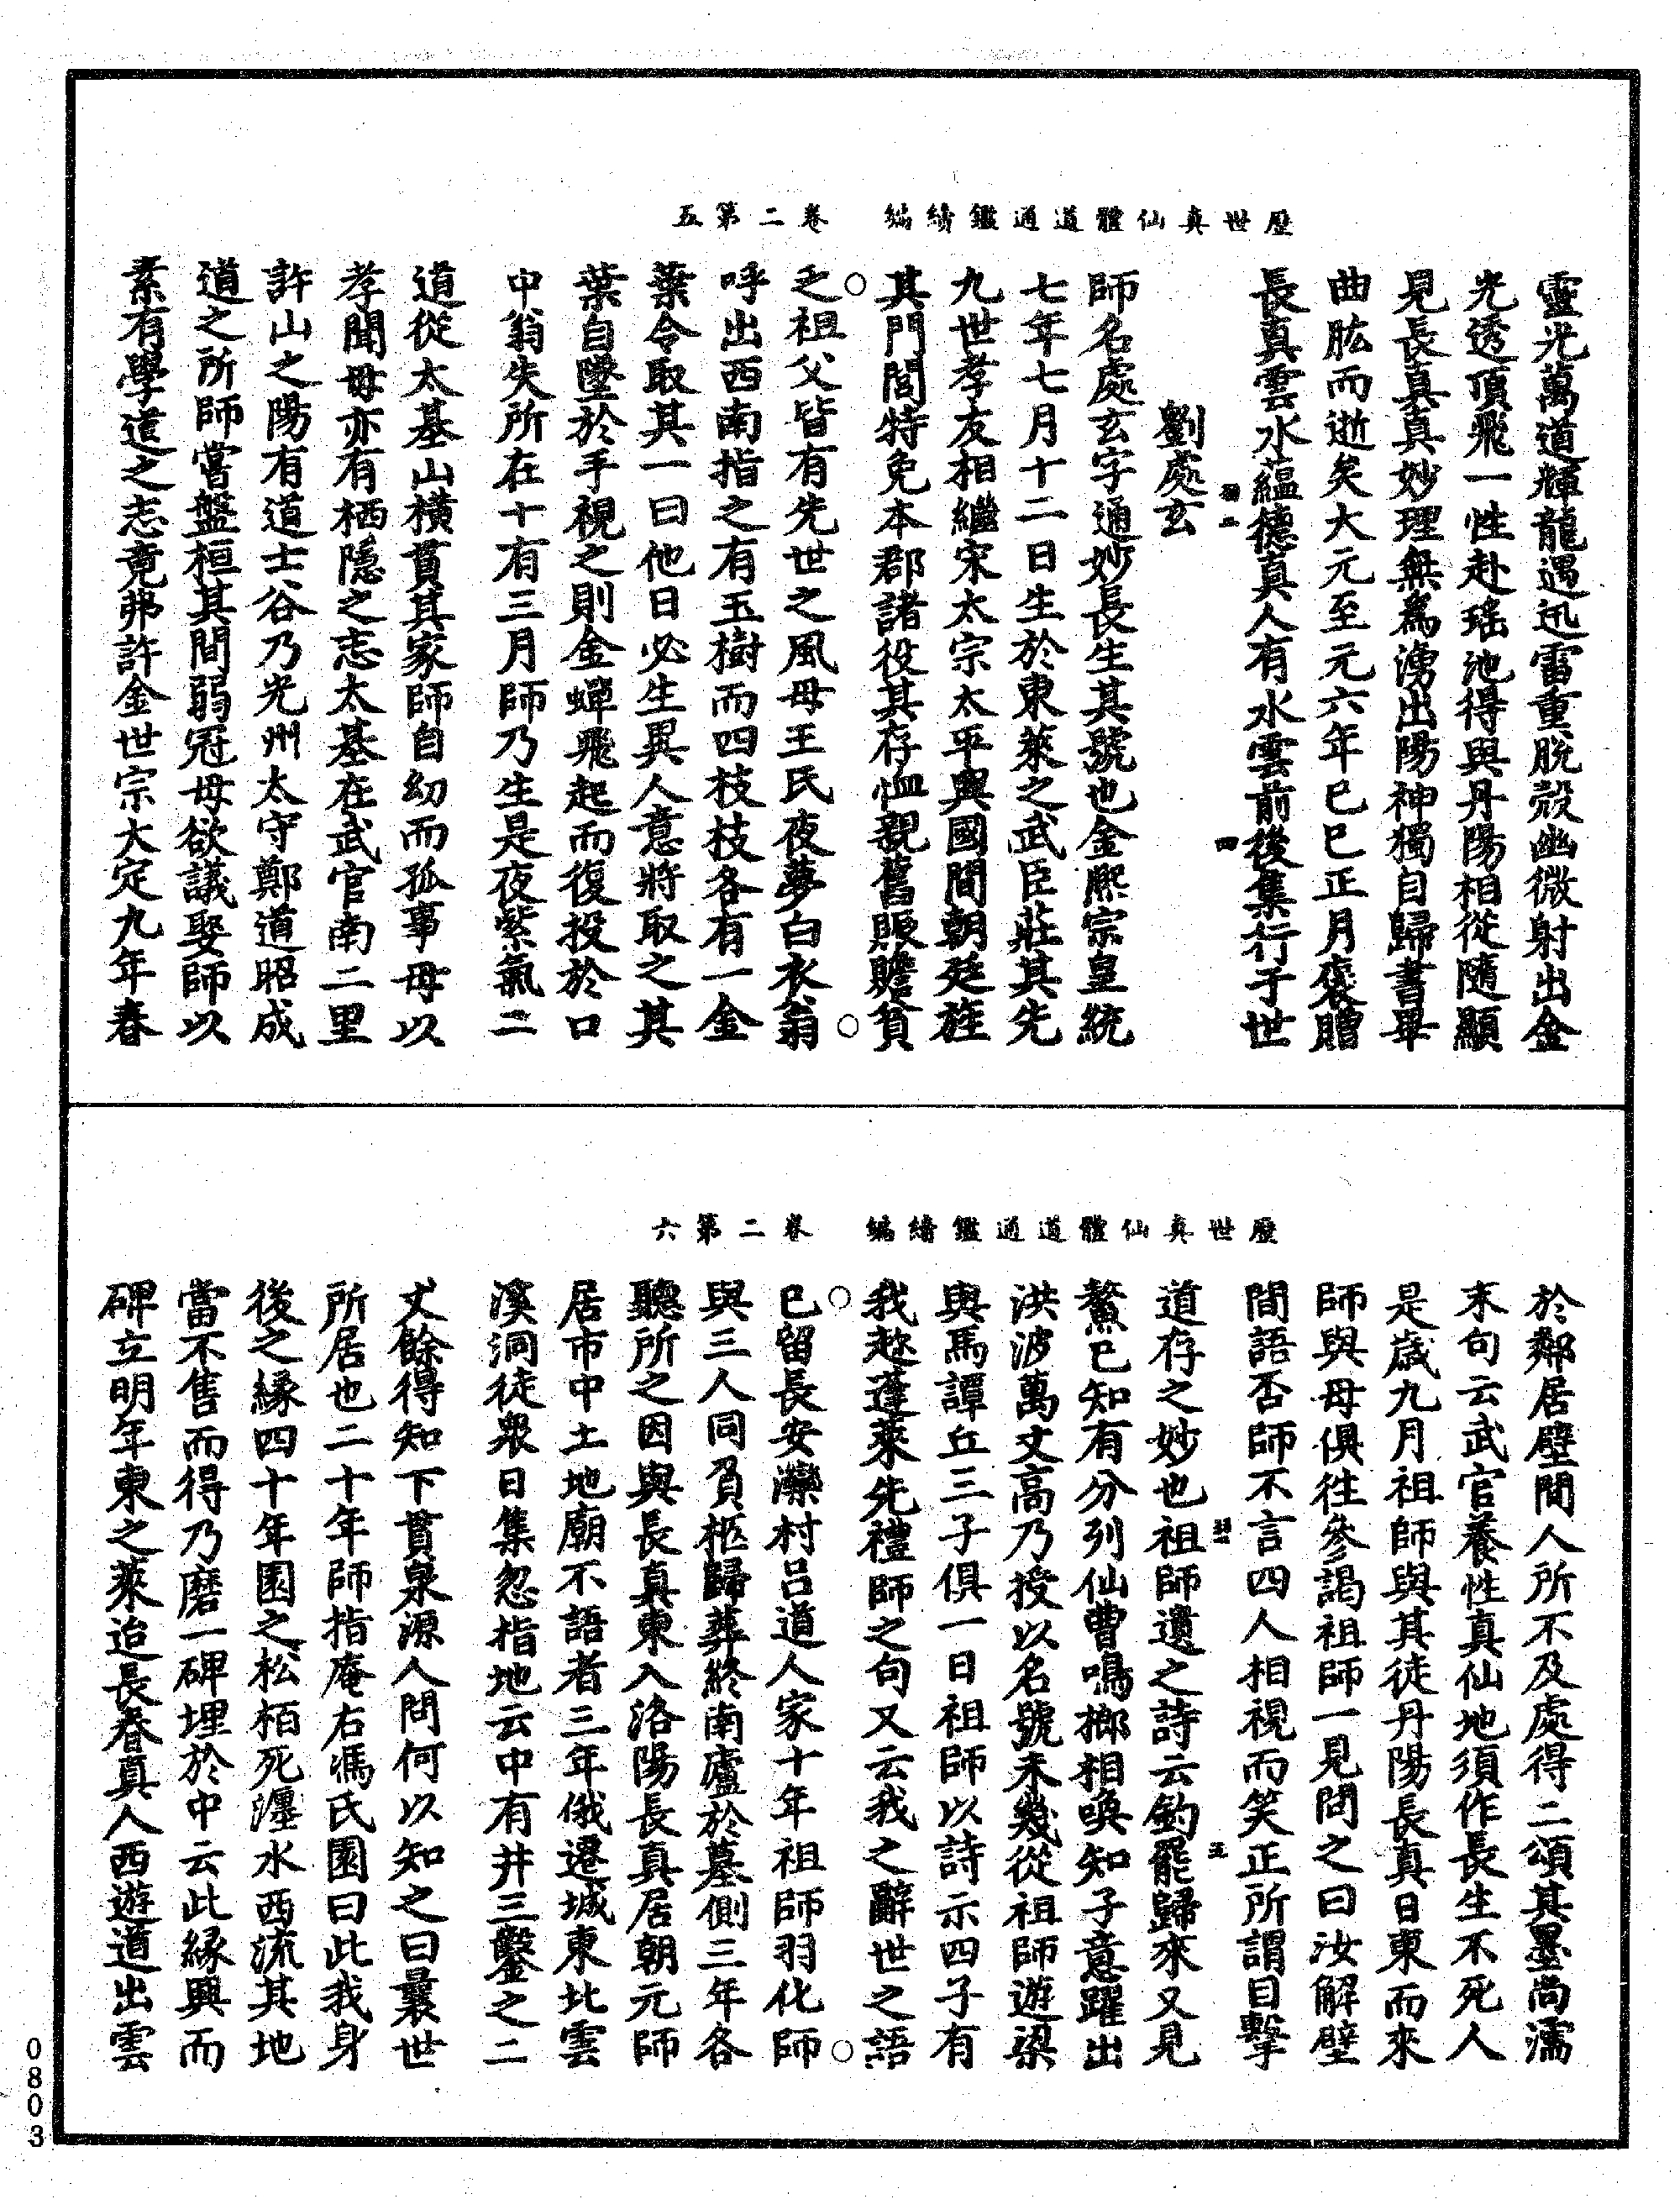 歷世真仙體道通鑑續編　卷二第五
靈光萬道輝龍遇迅雷重脫殼幽微射出金
光透頂飛一性赴瑤池得與丹陽相從隨顯
見長真真妙理無為湧出陽神獨自歸書畢
曲肱而逝矣大元至元六年己巳正月褒贈
長真雲水蘊德真人有水雲前後集行于世
四
劉處玄
師名處玄字通妙長生其號也金熙宗皇統
七年七月十二日生於東萊之武臣莊其先
九世孝友相繼宋太宗太平興國間朝廷旌
其門閭特免本郡諸役其存恤親舊賑贍貧
乏祖父皆有先世之風母王氏夜夢白衣翁
呼出西南指之有玉樹而四枝枝各有一金
葉令取其一曰他日必生異人意將取之其
葉自墜於手視之則金蟬飛起而復投於口
中翁失所在十有三月師乃生是夜紫氣二
道從太基山橫貫其家師自幼而孤事母以
孝聞母亦有栖隱之志太基在武官南二里
許山之陽有道士谷乃光州太守鄭道昭成
道之所師嘗盤桓其間弱冠母欲議娶師以
素有學道之志竟弗許金世宗大定九年春
歷世真仙體道通鑑續編　卷二第六
於鄰居壁間人所不及處得二頌其墨尚濡
末句云武官養性真仙地須作長生不死人
是歲九月祖師與其徒丹陽長真日東而來
師與母俱往參謁祖師一見問之曰汝解壁
間語否師不言四人相視而笑正所謂目擊
五
道存之妙也祖師遺之詩云釣罷歸來又見
鰲已知有分列仙曹鳴榔相喚知子意躍出
洪波萬丈高乃授以名號未幾從祖師遊梁
與馬譚丘三子俱一日祖師以詩示四子有
我趂蓬萊先禮師之句又云我之辭世之語
已留長安灤村呂道人家十年祖師羽化師
與三人同負柩歸葬終南廬於墓側三年各
聽所之因與長真東入洛陽長真居朝元師
居市中土地廟不語者三年俄遷城東北雲
溪洞徒眾日集忽指地云中有井三鑿之二
丈餘得知下貫泉源人問何以知之曰曩世
所居也二十年師指庵右馮氏園曰此我身
後之緣四十年園之松栢死瀍水西流其地
當不售而得乃磨一碑埋於中云此緣興而
碑立明年東之萊迨長春真人西遊道出雲
0803